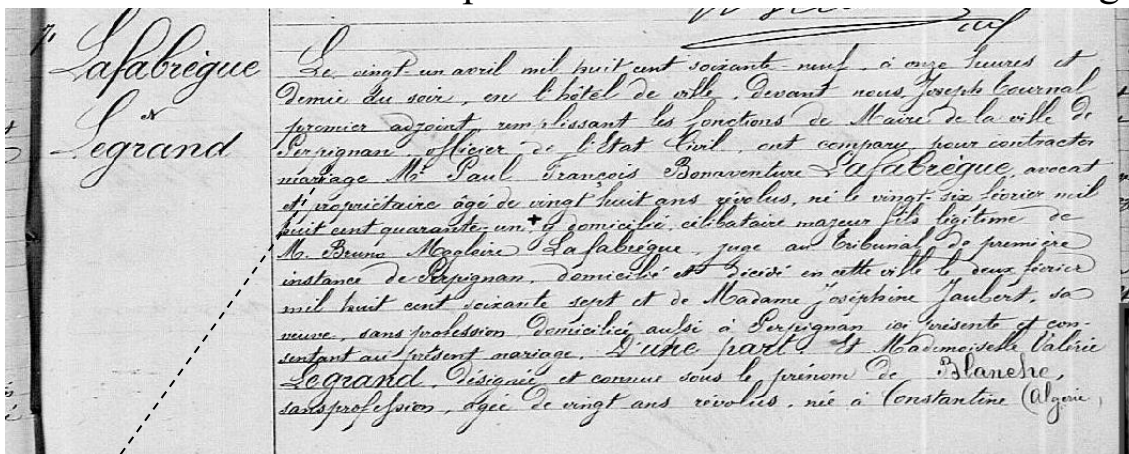 Lafabrègue
&
Legrand
Le vingt-un avril mil huit cent soixante-neuf, à onze heures et
demie du soir, en l'hôtel de ville, devant nous Joseph Cournal
premier adjoint remplissant les fonctions de Maire de la ville de
Perpignan, officier de l'État Civil, ont comparu pour contracter
mariage Mr Paul François Bonaventure Lafabrègue, avocat
et propriétaire âgé de vingt huit ans révolus, né le vingt-six février mil
huit cent quarante-un, + y domicilié, célibataire majeur fils légitime de
M. Bruno Magloire Lafabrègue, juge au tribunal de première
instance de Perpignan, domicilié et décédé en cette ville le deux février
mil huit cent soixante sept et de Madame Joséphine Jaubert, sa
veuve, sans profession, domiciliée aussi à Perpignan ici présente et con-
sentant au présent mariage. D'une part. Et Mademoiselle Valérie
Legrand, désignée et connue sous le prénom de Blanche,
sans profession, âgée de vingt ans révolus, née à Constantine (Algérie,